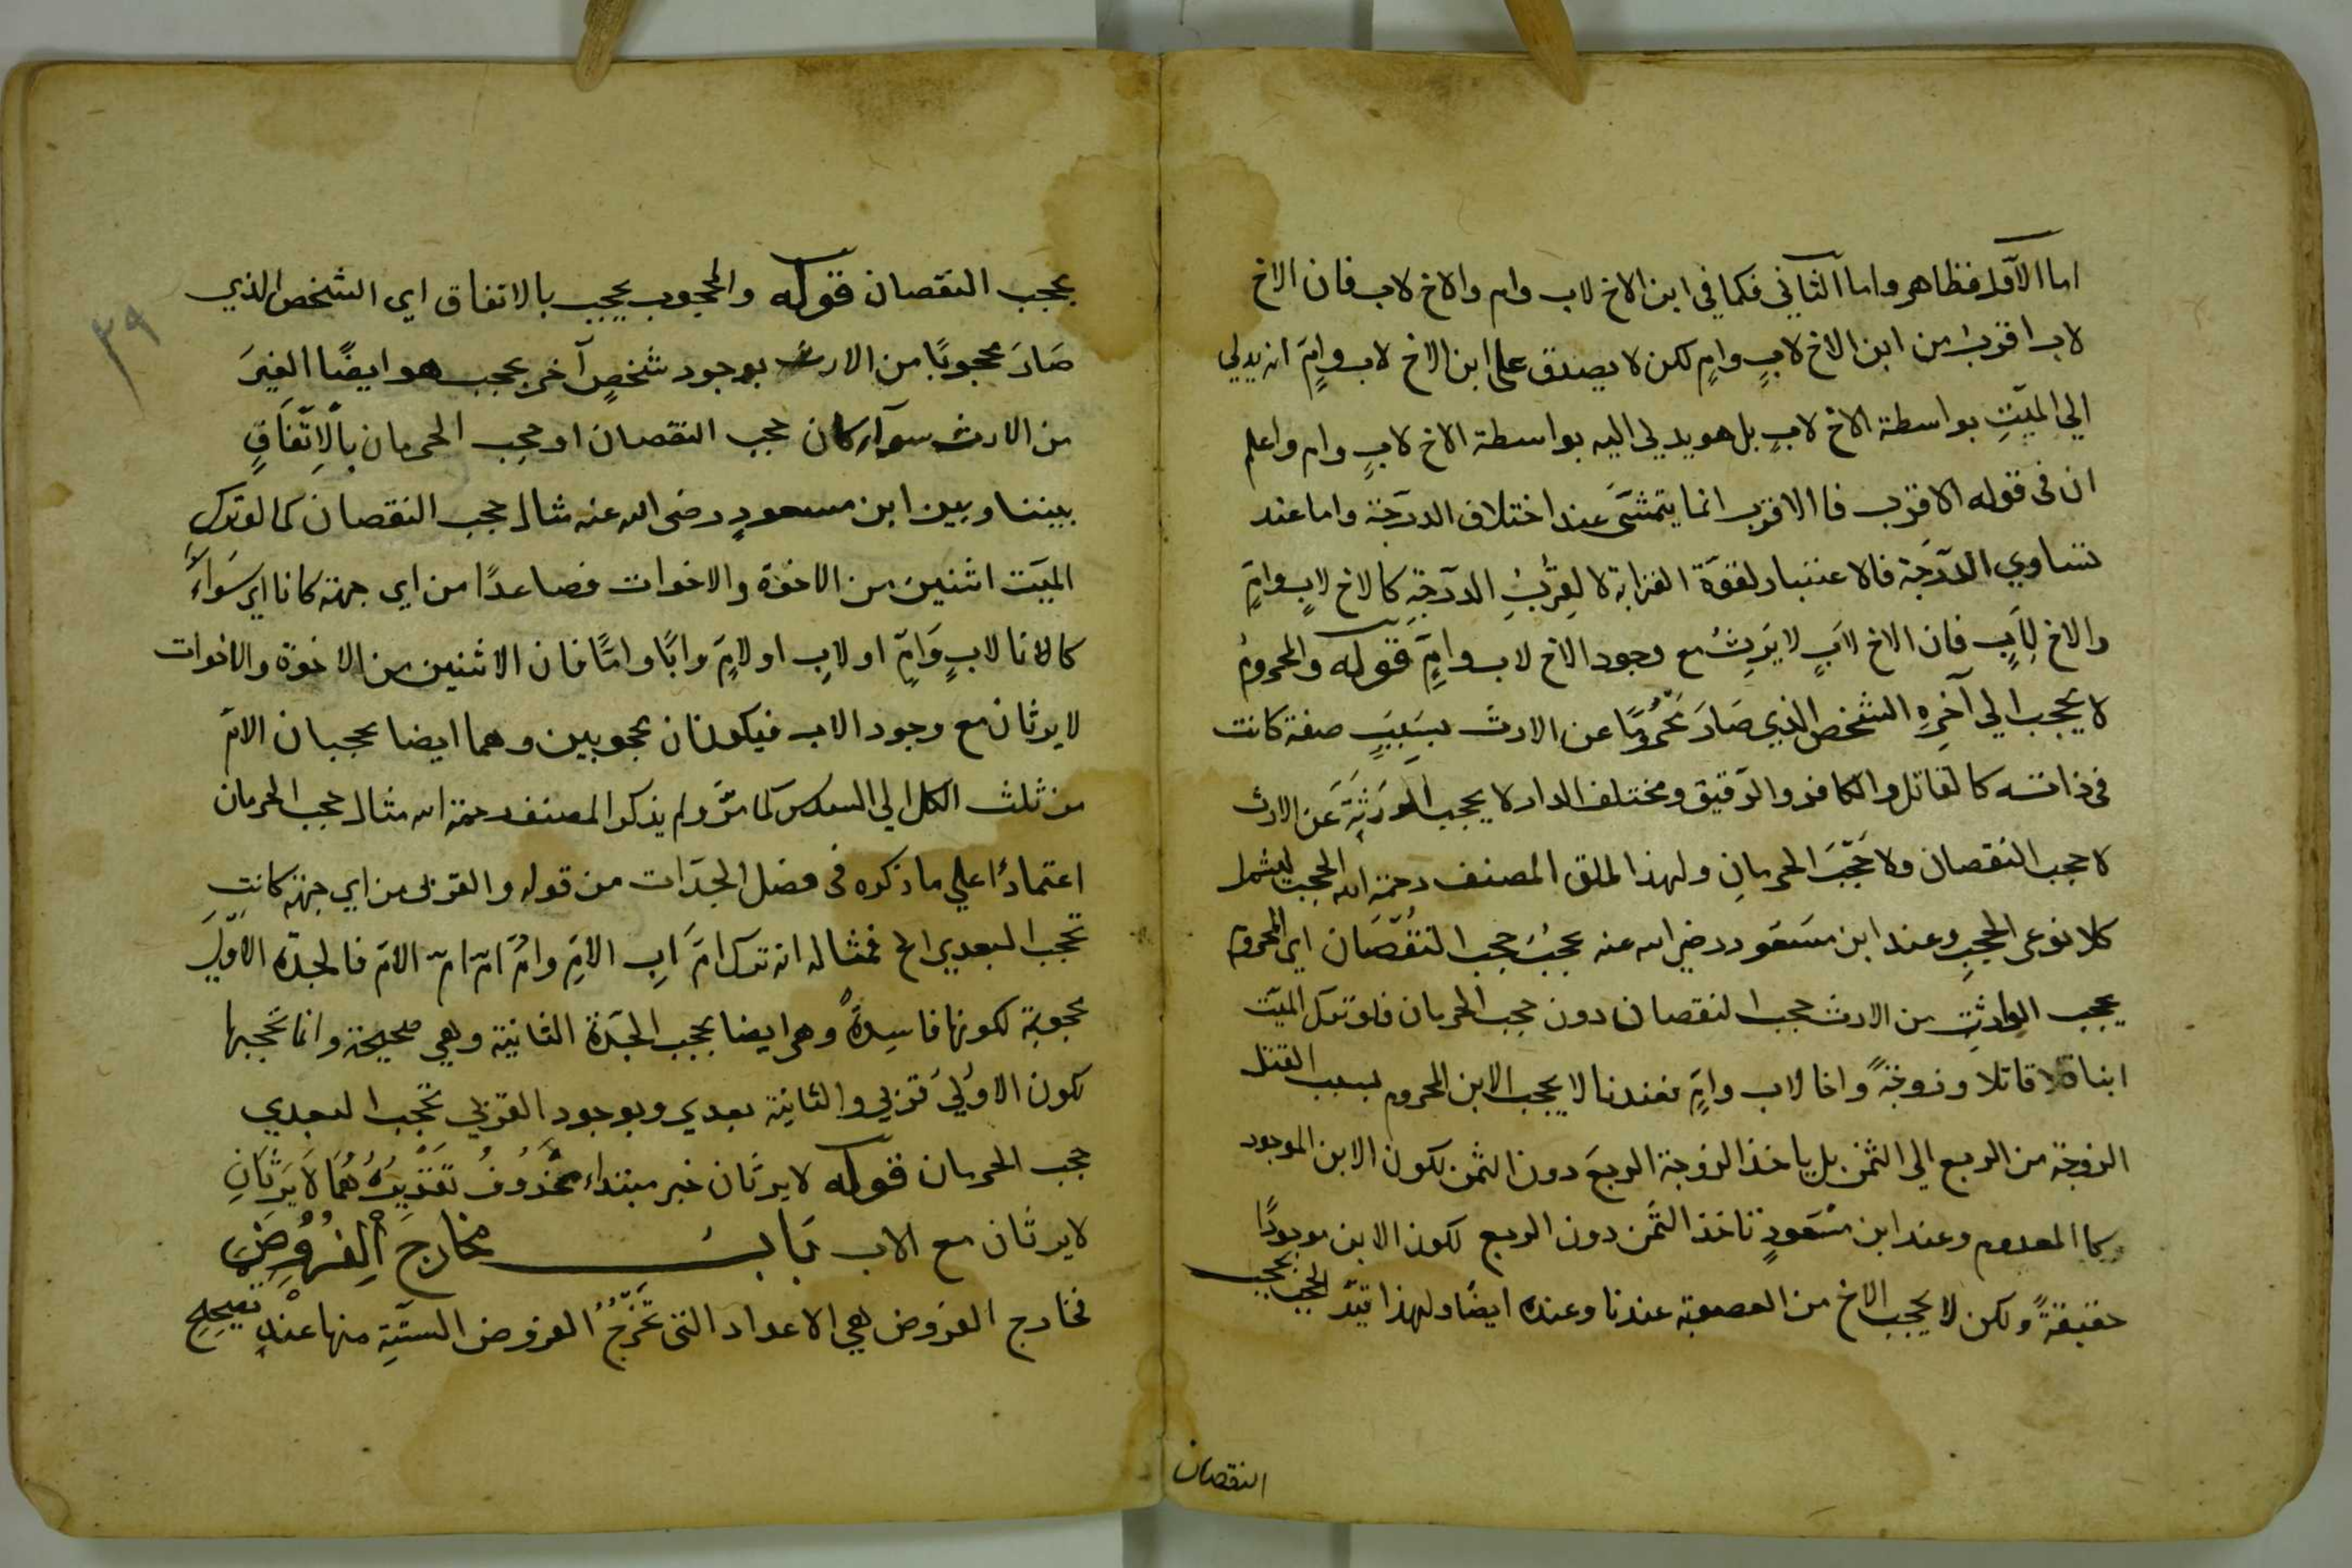 اما الاول فظاهر واما الثاني فكما في ابن الاخ لاب وام والاخ لاب فان الاخ
لاب اقرب من ابن الاخ لابٍ وامٍ لكن لا يصدق على ابن الاخ لاب وامٍّ انه يدلي
الي الميّتِ بواسطة الاخ لابٍ بل هو يدلي اليه بواسطة الاخ لابٍ وام واعلم
ان في قوله الاقرب فالاقرب انما يتمشَّى عند اختلاف الدرجة واما عند
تساوي الدرجة فالاعتبار لقوّة القرابة لا لِقُربِ الدرجةِ كالاخ لابٍ وامٍّ
والاخ لِاَبٍ فان الاخ لابٍ لا يَرِثُ مع وجود الاخ لاب وامٍّ قوله والمحرومُ
لا يحجب الي آخرِهِ الشخص الذي صَارَ مَحْرُومًا عن الارث بسَبَبِ صفة كانت
في ذاته كالقاتل والكافر والرقيق ومختلف الدار لا يحجب الوَرَثَةَ عَن الارث
لا حجب النقصان ولا حَجْبَ الحرمانِ ولهذا اطلق المصنف رحمة الله الحجب ليشمل
كلا نوعى الحجبِ وعند ابن مسَعود رضي الله عنه يحجبُ حجب النُقصَان اي المحروم
يحجب الوارثِ من الارث حجب النقصان دون حجب الحرمان فلو ترك الميّت
ابنا قاتلا وزوجةً واخا لاب وامٍّ فعندنا لا يحجب الابن المحروم بسبب القتل
الزوجة من الربع الي الثمن بل ياخذ الزوجة الربعَ دون الثمن لكون الابن الموجود
كالمعدوم وعند ابن مَسْعَودٍ تاخذ الثمن دون الربع لكون الابن موجودًا
حقيقةً ولكن لا يحجب الاخ من العصوبة عندنا وعنده ايضًا ولهذا قيّد الحجب بحجب
النقصان
٣٩
بحجب النقصان قوله والمحجوب يحجب بالاتفاق اي الشخص الذي
صَارَ محجوبًا من الارث بوجود شخصٍ آخر يحجب هو ايضًا الغيرَ
من الارث سوآء كان حجب النقصان او حجب الحرمان بِالْاِتِّفَاقِ
بيننا وبين ابن مسعودٍ رضى الله عنه مثال حجب النقصان كما لو ترك
الميّت اثنين من الاخوة والاخوات فصاعدًا من اي جهة كانا اي سَوَاءٌ
كانا لابٍ وَامٍّ او لابٍ او لامٍّ وابًا وامًّا فان الاثنين من الاخوة والاخوات
لا يرثان مع وجود الاب فيكونان محجوبين وهما ايضا يحجبان الامّ
من ثلث الكل الي السدس كما مرّ ولم يذكر المصنف رحمة الله مثال حجب الحرمان
اعتمادًا علي ما ذكره في فصل الجدّات من قوله والقربى من اي جهة كانت
تحجب البعدي الخ فمثاله ان ترك امَّ اَبِ الامِّ وامَّ امّ امّ الامّ فالجدة الاوّليَ
محجوبة لكونها فاسِدةً وهى ايضا يحجب الجدّة الثانية وهي صحيحة وانما تحجبها
لكون الاوليَ قربي والثانية بعدي وبوجود القربي تحجب البعدي
حجب الحرمان قوله لا يرثان خبر مبتداء مَحْذُوفٌ تَقْدِيرُهُ هُمَا لَا يَرِثَانِ
لا يرثان مع الاب بَابُ مخارجَ الْفُرُوضِ
مخارج الفروض هي الاعداد التي تَخْرُجُ الفروض الستّةِ منها عند تصحيح